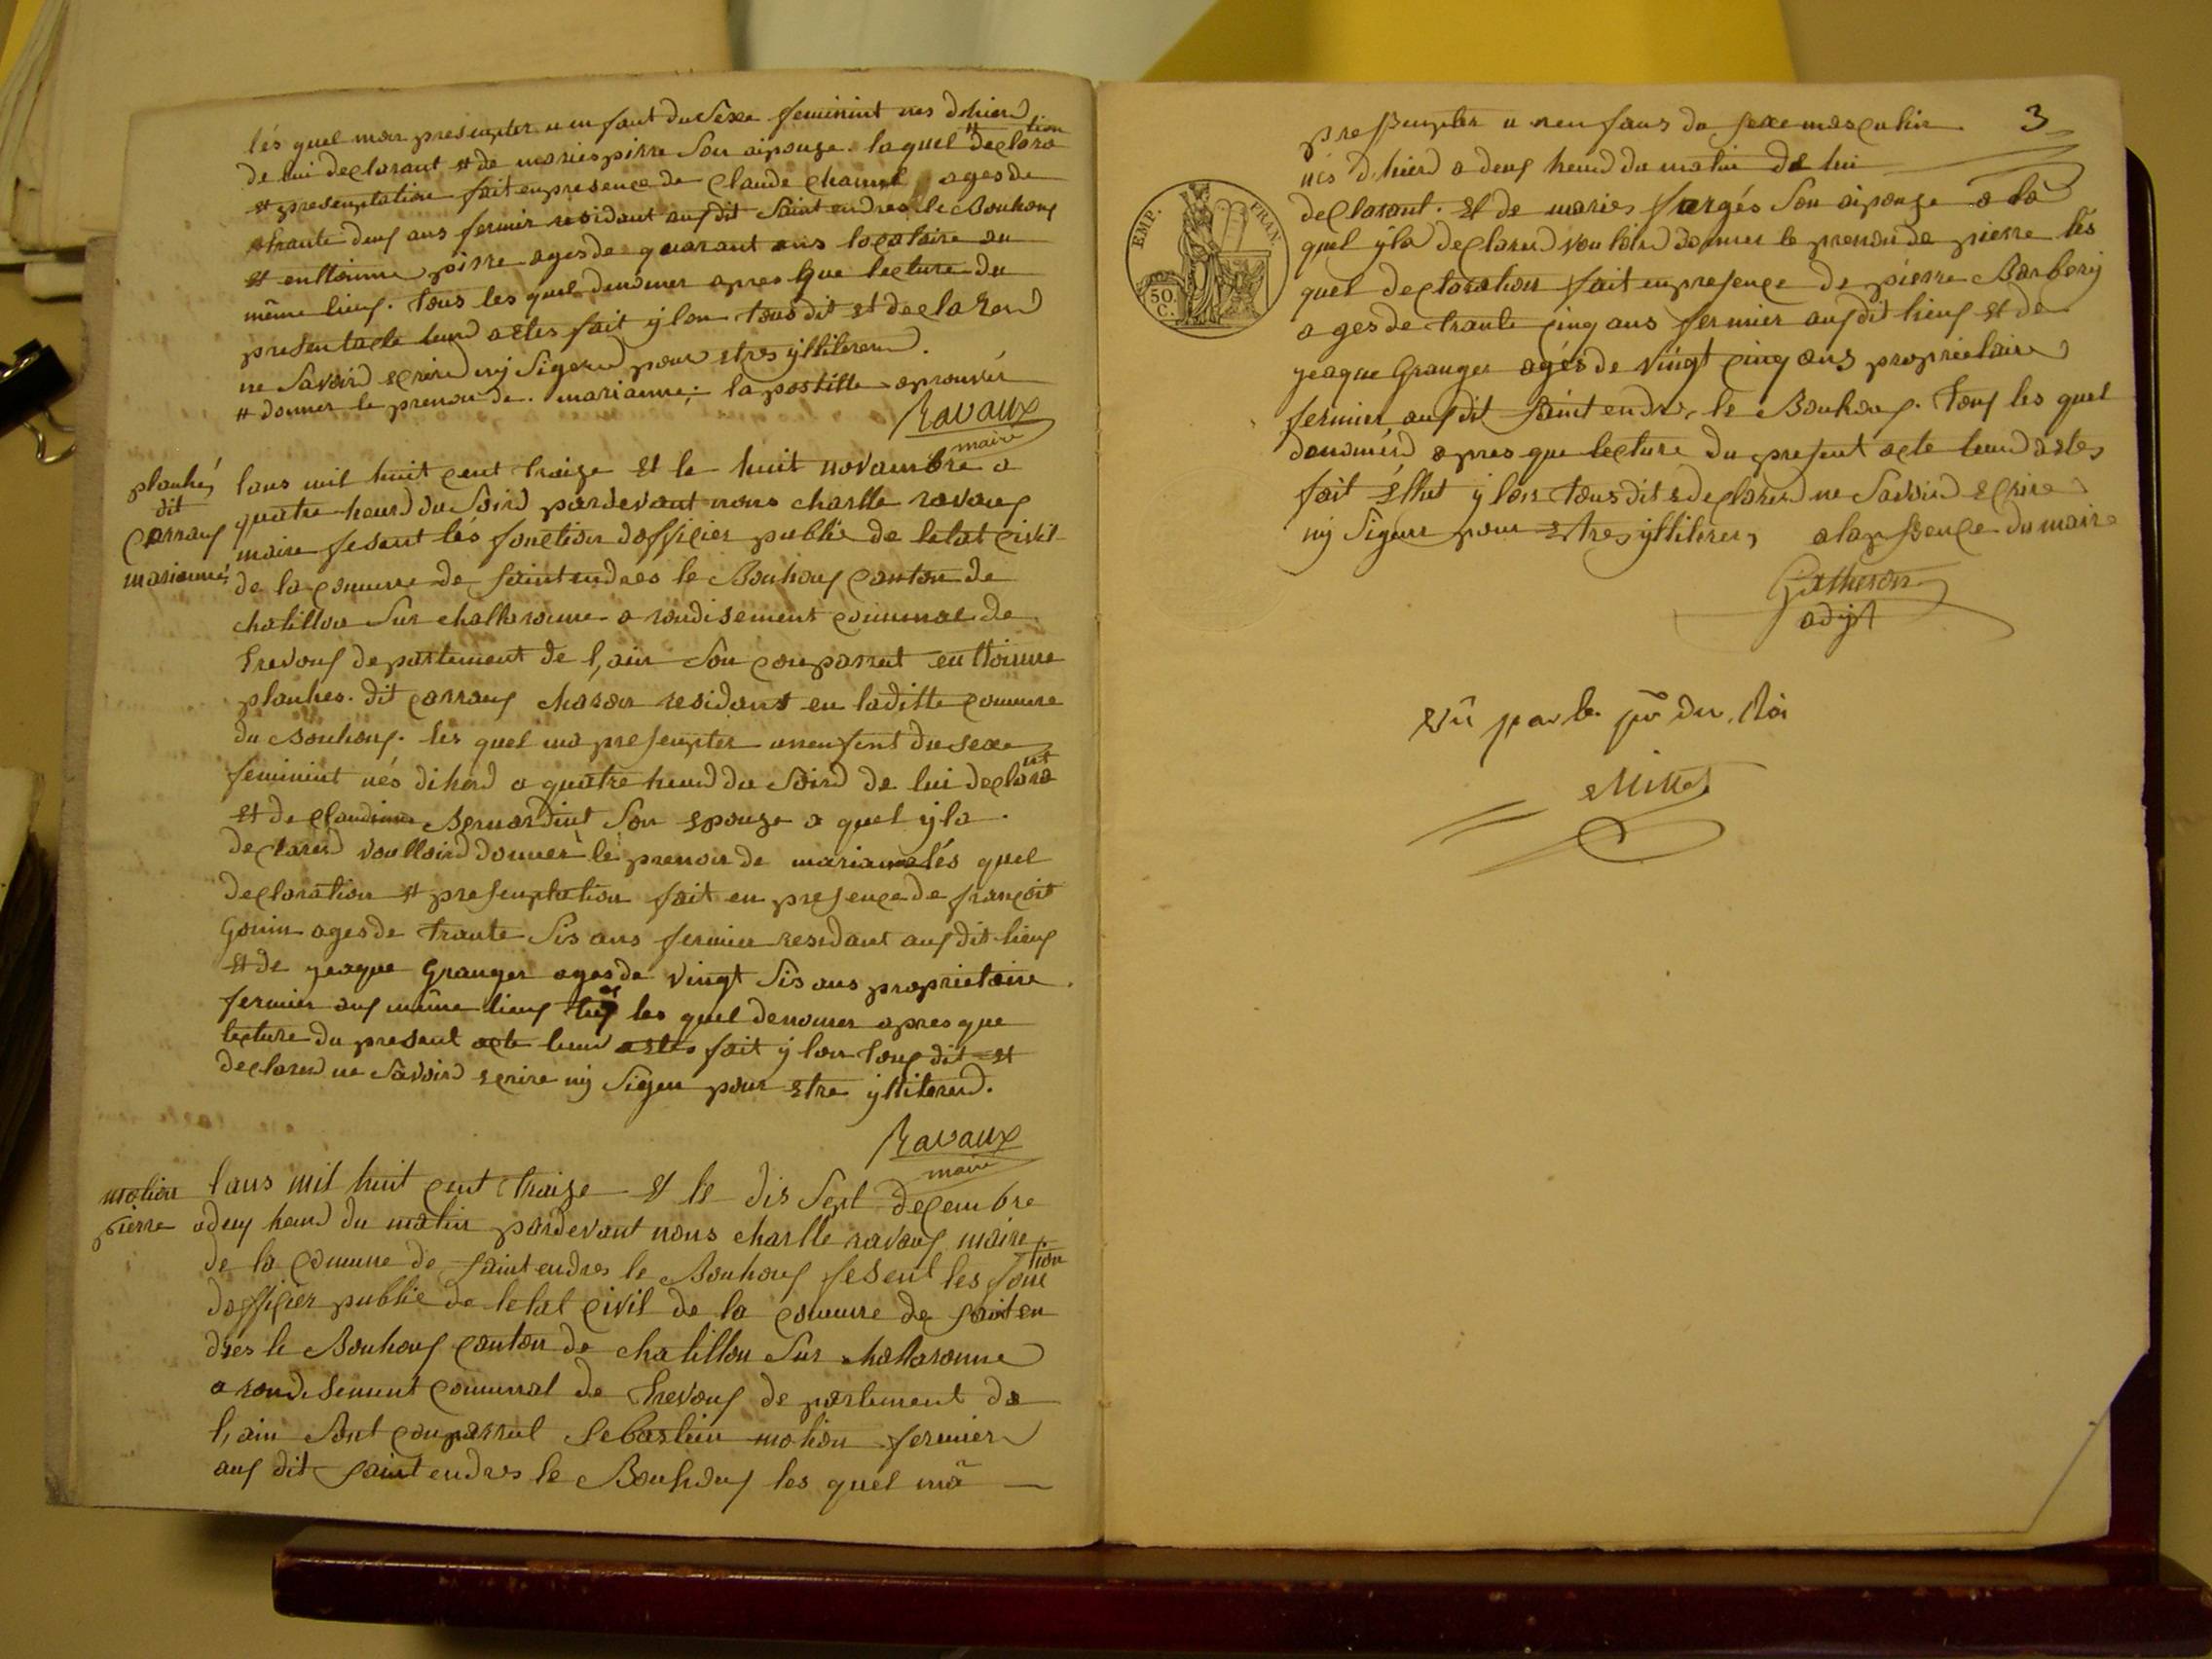 lés quel mon presempter un enfant du Sexe feminint nes dhierd
de lui declarant et de maries pirre Son aipouze. laquel # declara tion
et presemptation fait en presence de Claude Chamel ages de
trante deux ans fermier residant aux dit Saint endres le Bouhoux
et enttoinne pirre ages de quarant ans locataire au
même lieux. Tous les quel denomer apres que lecture du
present acte leurd a etes fait ÿ lon tous dit et declarerd
ne Savoird ecrird nÿ Signerd pour etres ÿlliterard.
# donner le prenon de. marianne; la postille aprouvér
Ravaux
maire
planhés
dit
Carraux
marianne
lans mil huit cent traize et le huit novambre a
quatre heurd du Soird pardevant nous charlle ravaux
maire fesent lés fonction dofficier public de letat civil
de la comune de Saint endres le Bouhoux canton de
chatillon Sur challaronne a rondisement comunal de
trevoux departement de l,ain Son comparrut enttoinne
planhes. dit carraux charon residant en laditte comune
du Bouhoux. lés quel ma presempter un enfent du sexe
feminint nés dihord a quatre heurd du Soird de lui declara nt
et de claudine Bernardint Son epouze a quel ÿla
declarerd voulloird donner le prenon de marianne lés quel
declaration et presemptation fait en presence de françoit
Gonin ages de trante Sis ans fermier residant aux dit lieux
et de jeaque Granger ages de vingt Sis ans proprietaire
fermier aux même lieux les quel denomer apres que
lecture du present acte leurd a etes fait ÿ lon toux dit et
declarerd ne Savoird ecrire nÿ Signer pour etre ÿlliterard.
Ravaux
maire
mohion
pierre
lans mil huit cent traize et le dis Sept decembre
a deux heurd du matin pardevant nous charlle ravaux maire
de la comune de Saint endres le Bouhoux fesent les fonc tion
dofficier public de letat civil de la comune de Saint en
dres le Bouhoux canton de chatillon Sur challaronne
a rondisement comunal de trevoux departement de
l,ain Sont comparrut Sebastien mohion fermier
aux dit Saint endres le Bouhoux les quel mã
3
presempter u nenfans du sexe masculin
nés dhierd a deux heurd du matin de lui
declarant. et de maries fargés Son aipouze a la
quel ÿla declarerd voulloird donner le prenon de pierre lés
quel declaration fait en presence de pierre Barberÿ
ages de trante cinq ans fermier aux dit lieux et de
jeaque Granger agés de vingt cinq ans proprietaire
fermier aux dit Saint endres le Bouhoux. toux les quel
denomérd apres que lecture du present acte leurd a etes
fait ÿ lon tous dit declarerd ne Savoird ecrire
nÿ Signer pour etres ÿlliterer, a lapsence du maire
EMP. FRAN.
50. C.
Gutheron
adjt
Vû par le pr du Roi
Millet